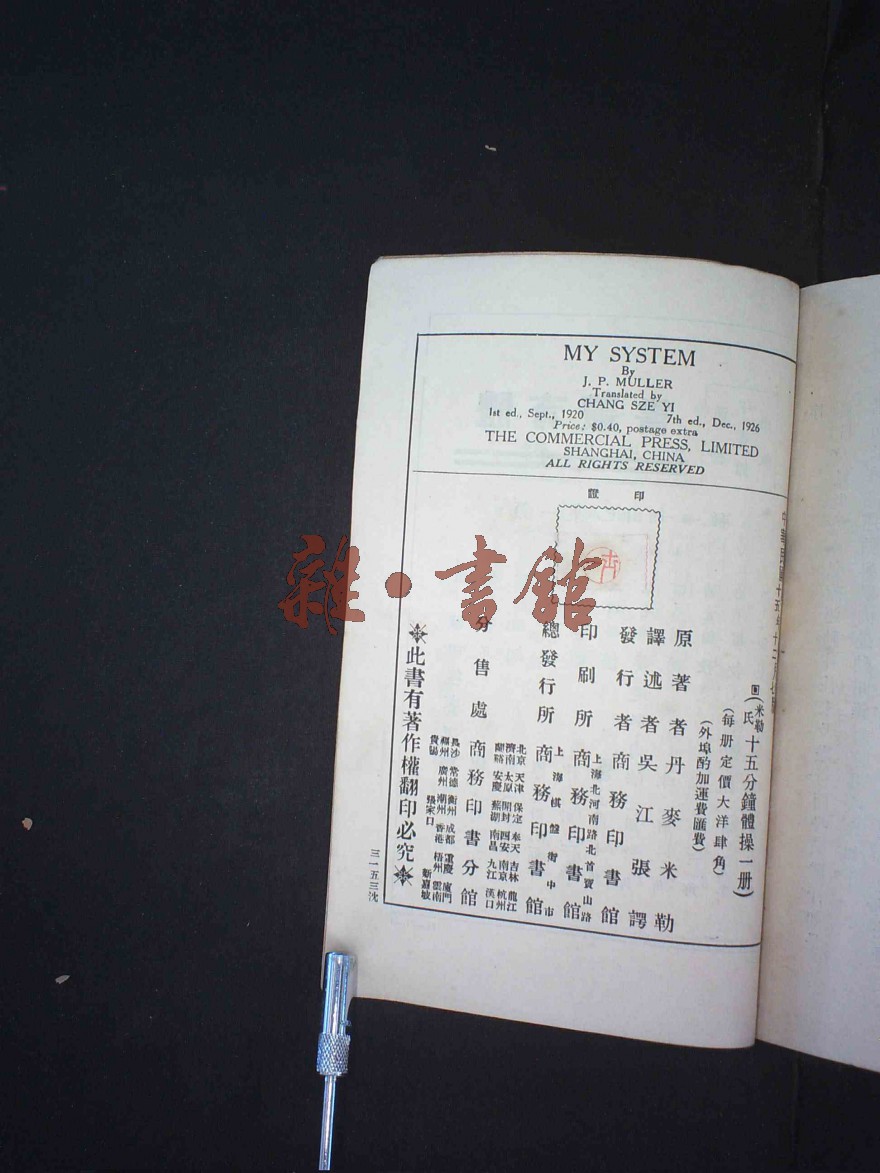 MY SYSTEM
By
J. P. MULLER
Translated by
CHANG SZE YI
1st ed., Sept., 1920 7th ed., Dec., 1926
Price: $0.40, postage extra
THE COMMERCIAL PRESS, LIMITED
SHANGHAI, CHINA
ALL RIGHTS RESERVED
印證
米勒氏十五分鐘體操一册
每册定價大洋肆角
外埠酌加運費匯費
原著者丹麥米勒
譯述者吳江張諤
發行者商務印書館
上海北河南路北首寶山路
印刷所商務印書館
上海棋盤街中市
總發行所商務印書館
北京 天津 保定 奉天 吉林 龍江
濟南 太原 開封 西安 南京 杭州
蘭谿 安慶 蕪湖 南昌 九江 漢口
分售處商務印書分館
長沙 常德 衡州 成都 重慶 廈門
福州 廣州 潮州 香港 梧州 雲南
貴陽 張家口 新嘉坡
此書有著作權翻印必究
三一五三沈
雜·書館